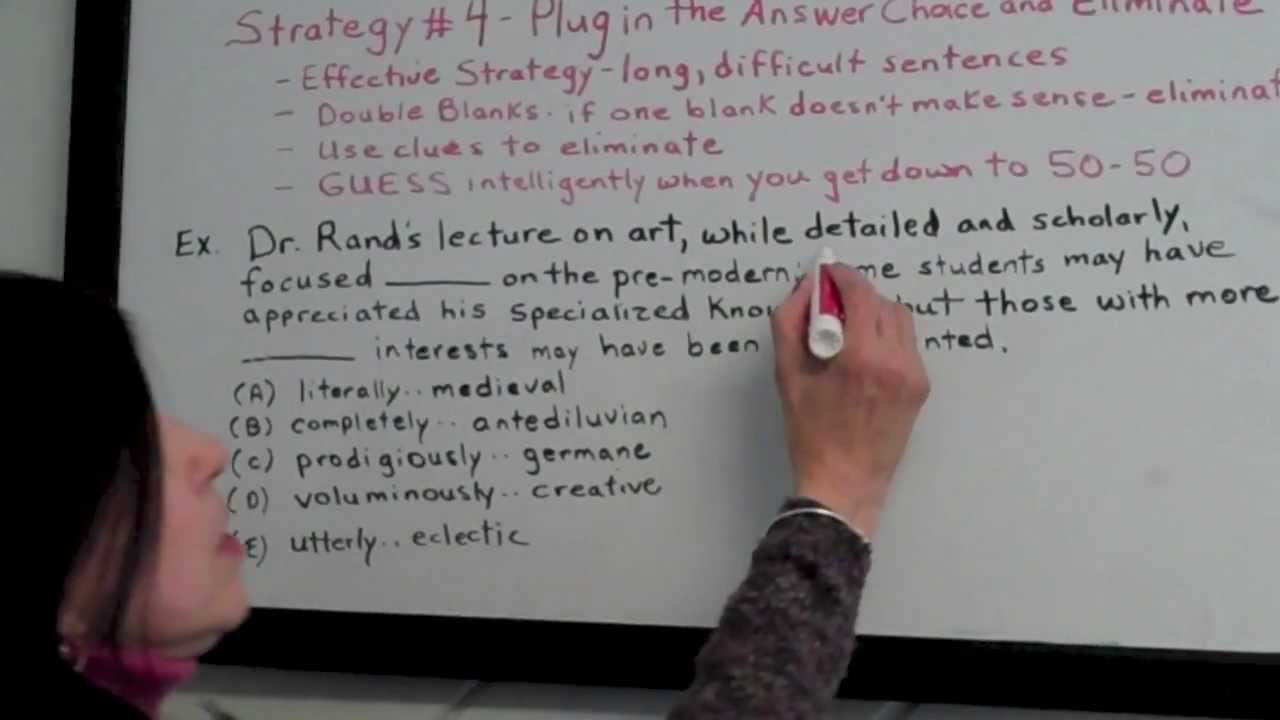 Strategy #4 - Plug in the Answer Choice and Eliminate
- Effective Strategy - long, difficult sentences
- Double Blanks. if one blank doesn't make sense - eliminat
- Use clues to eliminate
- GUESS intelligently when you get down to 50-50
Ex. Dr. Rand's lecture on art, while detailed and scholarly,
focused ______ on the pre-modern; me students may have
appreciated his specialized Know but those with more
______ interests may have been nted.
(A) literally.. medieval
(B) completely.. antediluvian
(C) prodigiously.. germane
(D) voluminously.. creative
(E) utterly.. eclectic